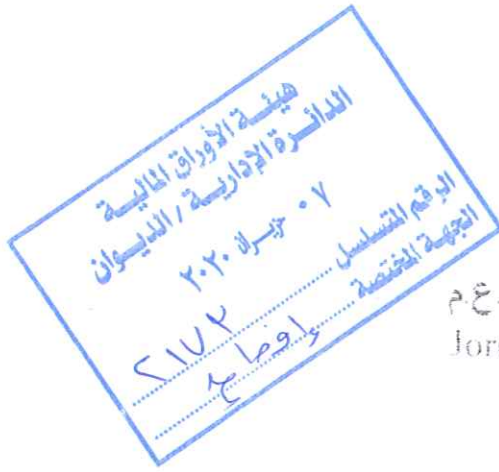 هيئة الأوراق المالية
الدائرة الإدارية / الديوان
٠٧ حزيران ٢٠٢٠
الرقم المتسلسل ٢١٧٢
الجهة المختصة إفصاح
ع.م